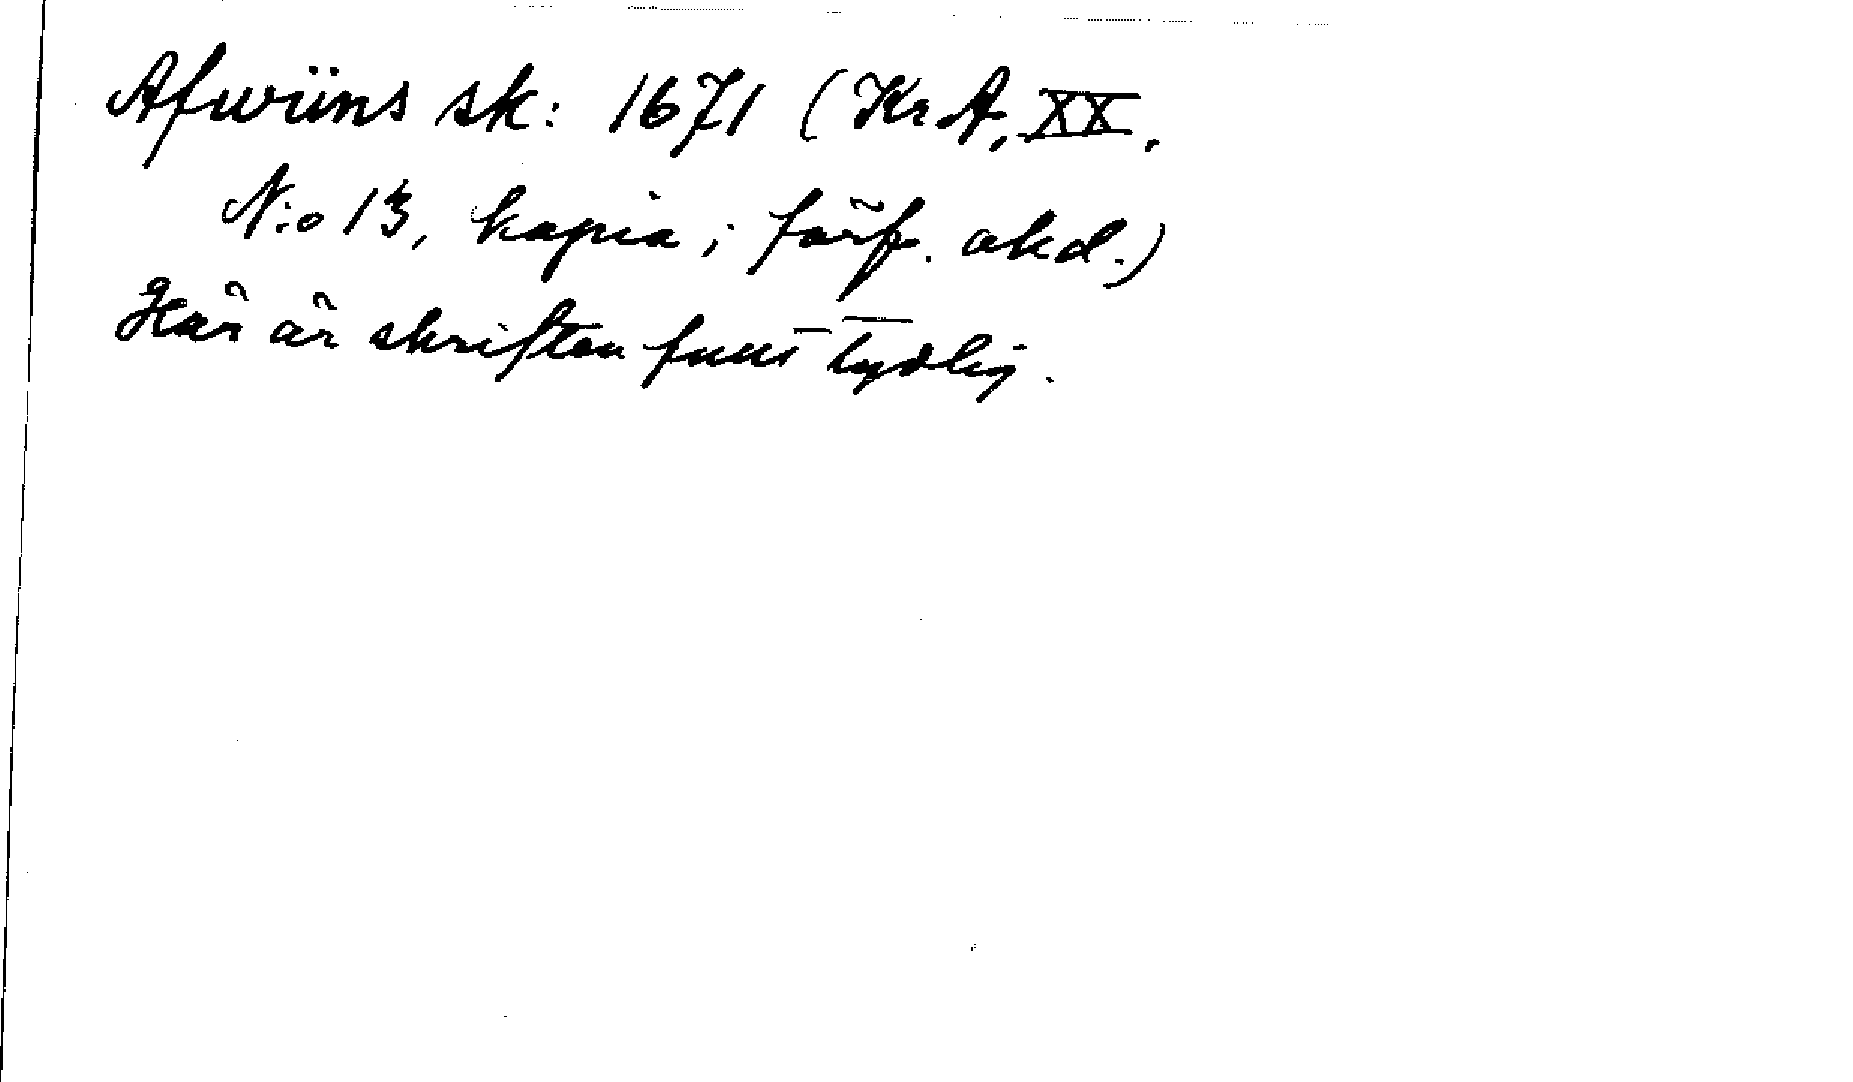 Afwüns sk: 1671 (KrA, XX,
N:o 13, kopia; förf. okd.)
Här är skriften fullt tydlig.